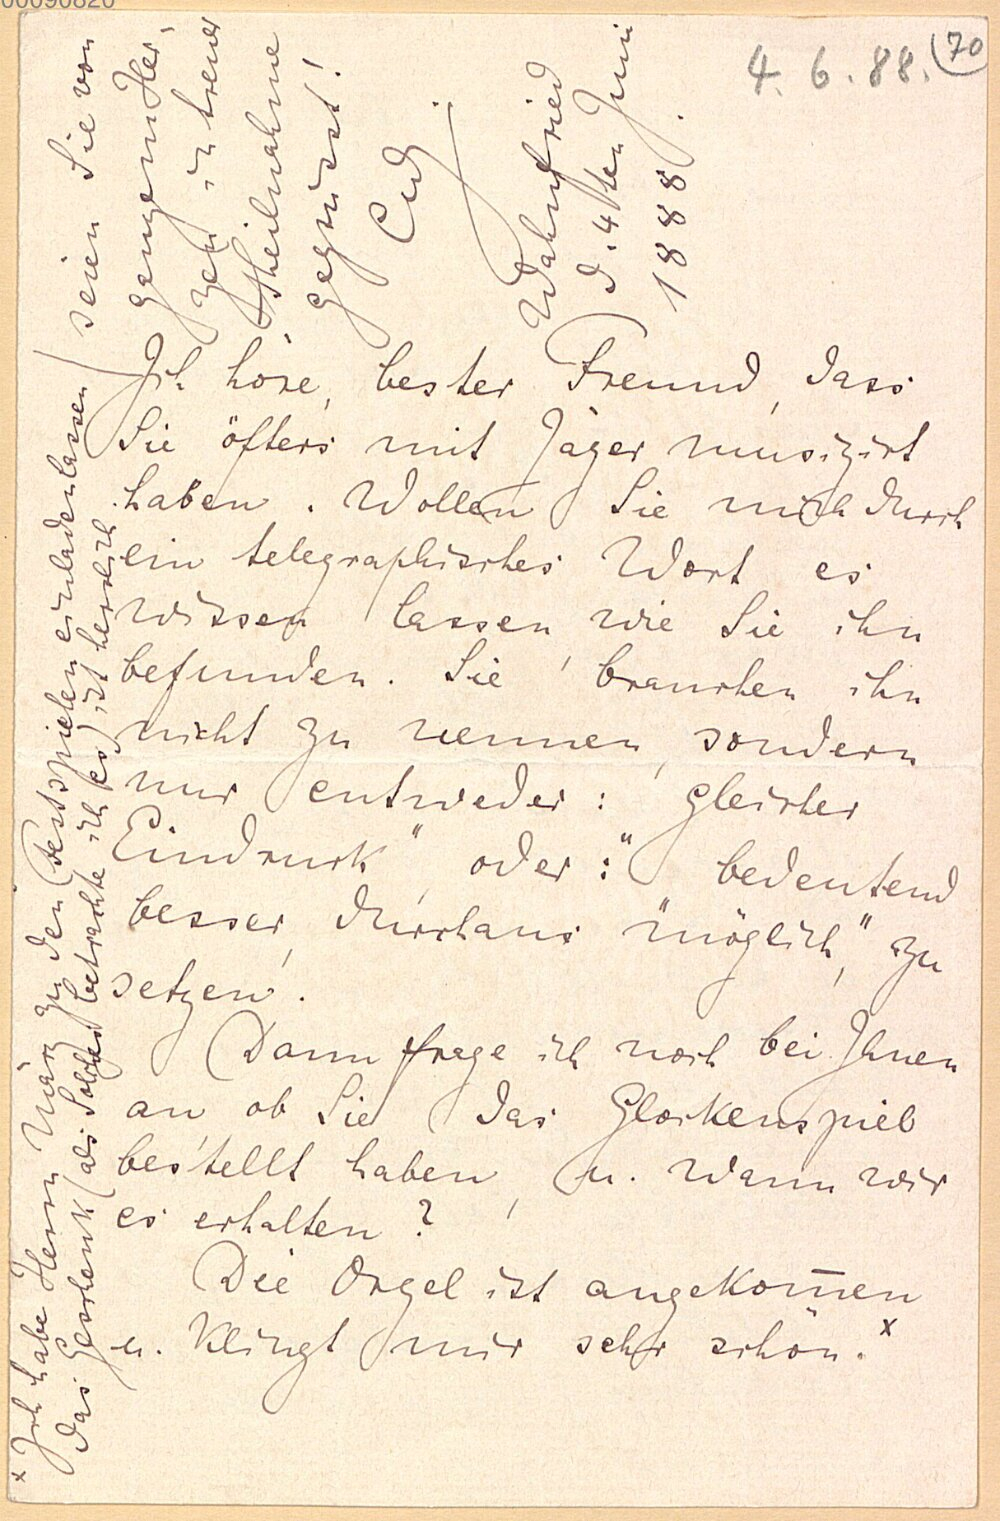 00090820
4. 6. 88. (70
Ich höre, bester Freund, dass
Sie öfters mit Jäger musizirt
haben. Wollen Sie mich durch
ein telegraphisches Wort es
wissen lassen, wie Sie ihn
befunden. Sie brauchen ihn
nicht zu nennen, sondern
nur entweder: gleicher
Eindruck", oder: "bedeutend
besser, durchaus möglich", zu
setzen.
Dann frage ich noch bei Ihnen
an ob Sie das Glockenspiel
bestellt haben, u. wann wir
es erhalten?
Die Orgel ist angekom̅en
u. klingt mir sehr schön. x
x Ich habe Herrn März zu den Festspielen einladen lassen
das Geschenk (als Solches betrachte ich es) ist herrlich
seien Sie von
ganzem Her-
zen in treuer
Theilnahme
gegrüsst!
CW.
Wahnfried
d. 4ten Juni
1888.